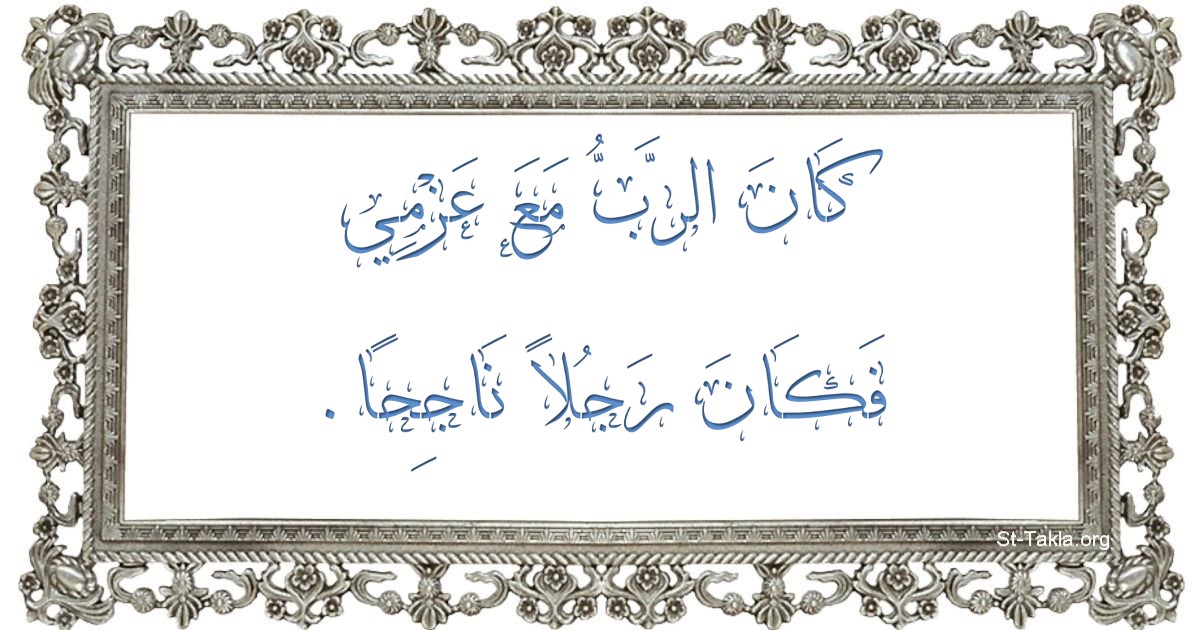 كَانَ الرَّبُّ مَعَ عَزْمِي
فَكَانَ رَجُلاً نَاجِحًا .
St-Takla.org